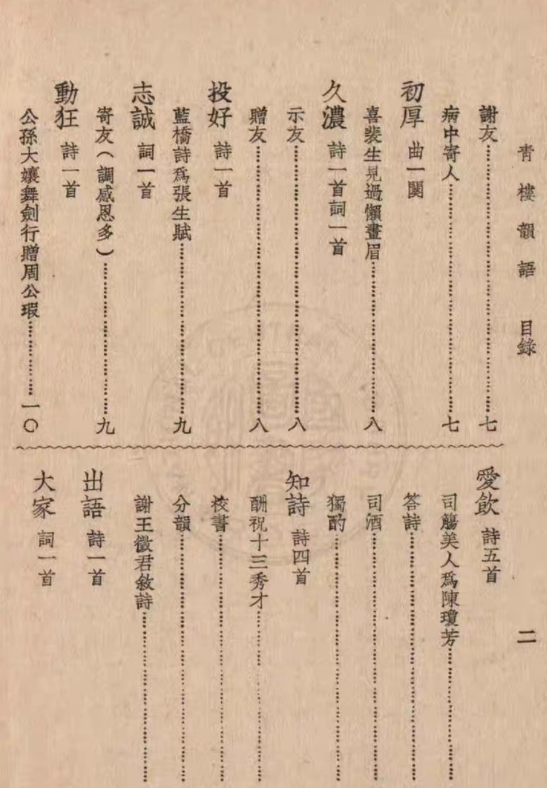 青樓韻語 目錄 二
謝友……七
病中寄人……七
初厚 曲一闋
喜裴生見過懶畫眉……八
久濃 詩一首詞一首
示友……八
贈友……八
投好 詩一首
藍橋詩爲張生賦……九
志誠 詞一首
寄友(調感恩多)……九
動狂 詩一首
公孫大孃舞劍行贈周公瑕……一〇
愛飲 詩五首
司觴美人爲陳瓊芳……
答詩……
司酒……
獨酌……
知詩 詩四首
酬祝十三秀才……
校書……
分韻……
謝王徵君敘詩……
出語 詩一首
大家 詞一首